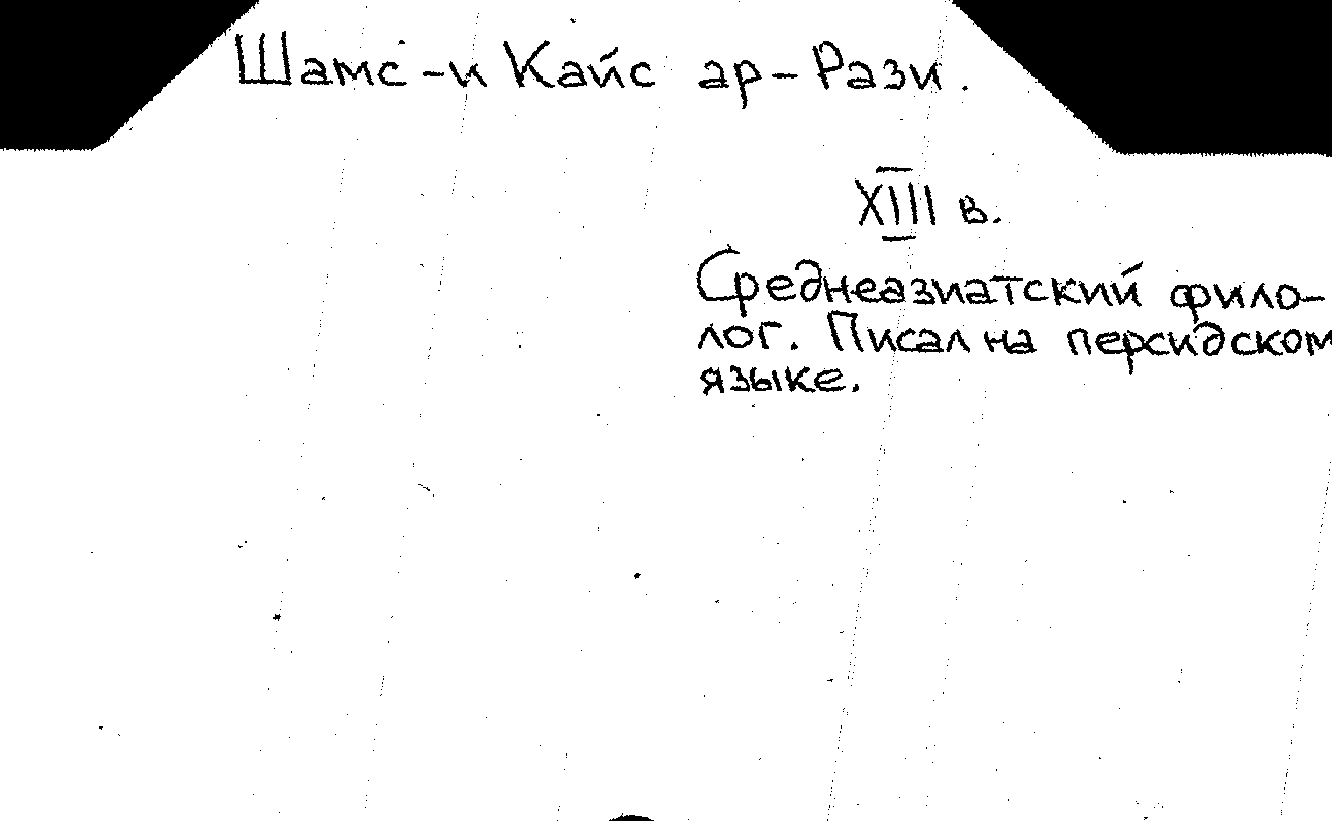 Шамс-и Кайс ар-Рази.
XIII в.
Среднеазиатский фило-
лог. Писал на персидском
языке.